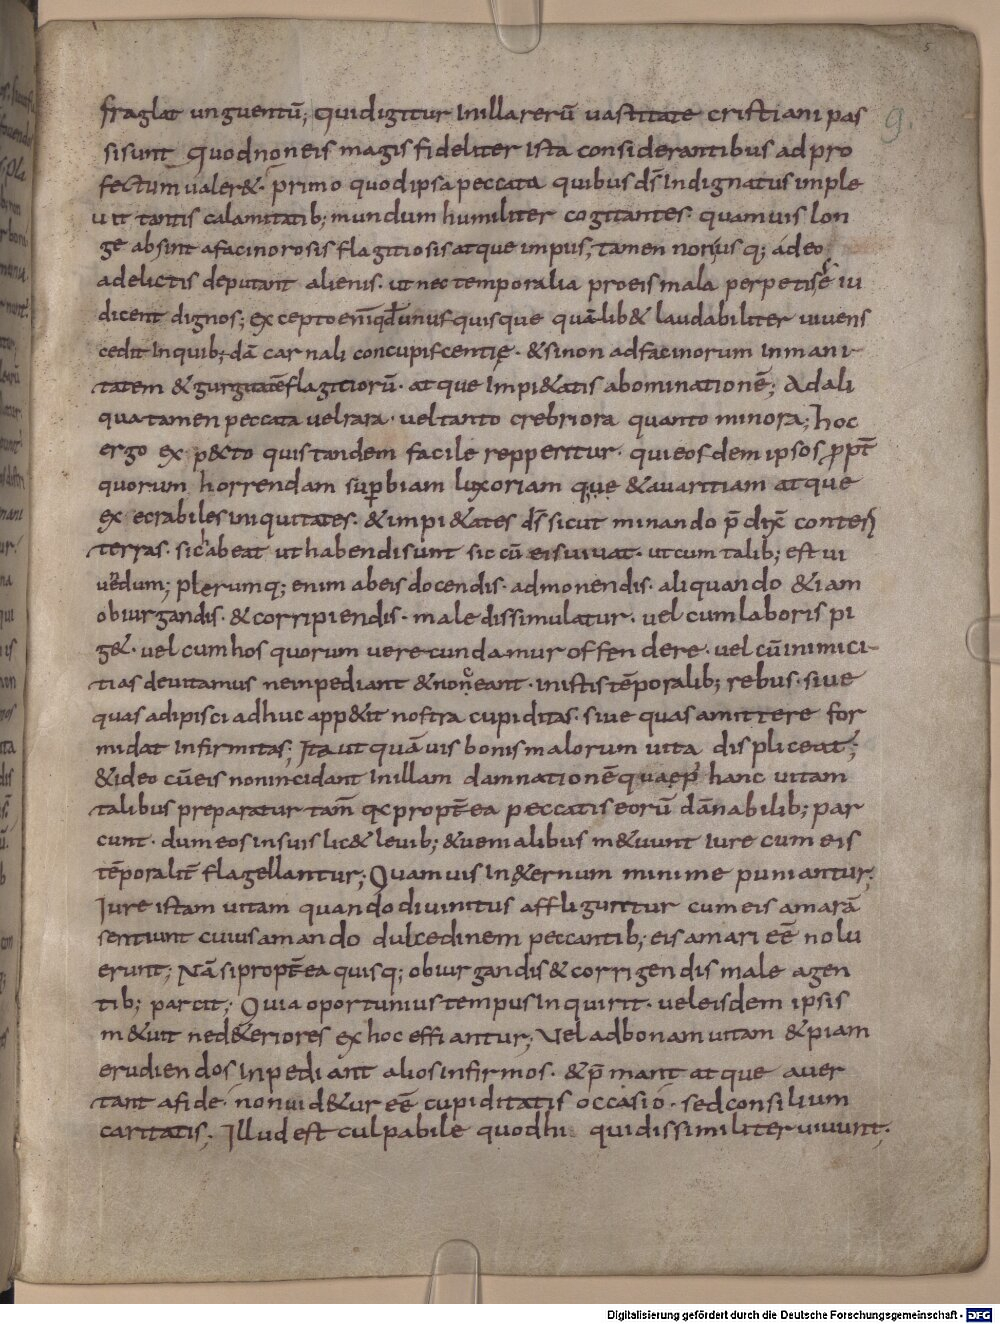 5
9.
fraglat unguentū; Quidigitur Inillarerū vastitate cristiani pas
sisunt quodnoneis magis fideliter ista considerantibus adpro
fectum valer&. primo quodipsa peccata quibus ds̄ Indignatus imple
uit tantis calamitatib; mundum humiliter cogitantes. quamuis lon
ge absint afacinorosis flagitiosis atque impiis; tamen non usq; adeo
adelictis deputant alienis. ut nec temporalia proeis mala perpeti sē iu
dicent dignos; excepto enī qd unus quisque quālib& laudabiliter uiuens
cedit Inquib;dā carnali concupiscentię. & sinon adfacinorum Inmani-
tatem & gurguitē flagitiorū. atque Impi&atis abominationē; Adali
qua tamen peccata vel rara. vel tanto crebriora quanto minora; hoc
ergo excepto quis tandem facile repperitur. qui eosdem ipsos ꝓpt̄
quorum horrendam suꝑbiam luxoriam que & auaritiam atque
execrabiles iniquitates. & impi&ates ds̄ sicut minando p̄dix̄ conterit
terras. sic habeat ut habendi sunt sic cū eis uiuat. ut cum talib; est ui
uendum; plerumq; enim abeis docendis. admonendis. aliquando &iam
obiurgandis. & corripiendis. male dissimulatur. vel cum laboris pi
g&. vel cum hos quorum uerecundamur offendere. vel cū inimici-
tias deuitamus ne inpediant & noceant. inistis tēporalib; rebus. siue
quas adipisci adhuc app&it nostra cupiditas. siue quas amittere for
midat Infirmitas; Ita ut quāuis bonis malorum uita displiceat;
& ideo cū eis non incidant Inillam damnationē quae p' hanc uitam
talibus preparatur tam̄ qꝛ propt̄ea peccatis eorū dānabilib; par
cunt. dum eos insuis lic& leuib; & uenialibus m&uunt Iure cum eis
tēporalit̄ flagellantur; Quamuis In&ernum minime puniantur;
Iure istam uitam quando diuinitus affliguntur cum eis amarā
sentiunt cuius amando dulcedinem peccantib; eis amari eē nolu
erunt; Nā si propt̄ea quisq; obiurgandis & corrigendis male agen
tib; parcit; Quia oportunius tempus Inquirit. uel eisdem ipsis
m&uit ne d&eriores ex hoc effiantur; Vel ad bonam uitam & piam
erudiendos Inpediant alios infirmos. & p̄mant atque auer
tant afide. non uid&ur eē cupiditatis occasio. sed consilium
caritatis; Illud est culpabile quod hi qui dissimiliter uiuunt.
Digitalisierung gefördert durch die Deutsche Forschungsgemeinschaft - DFG